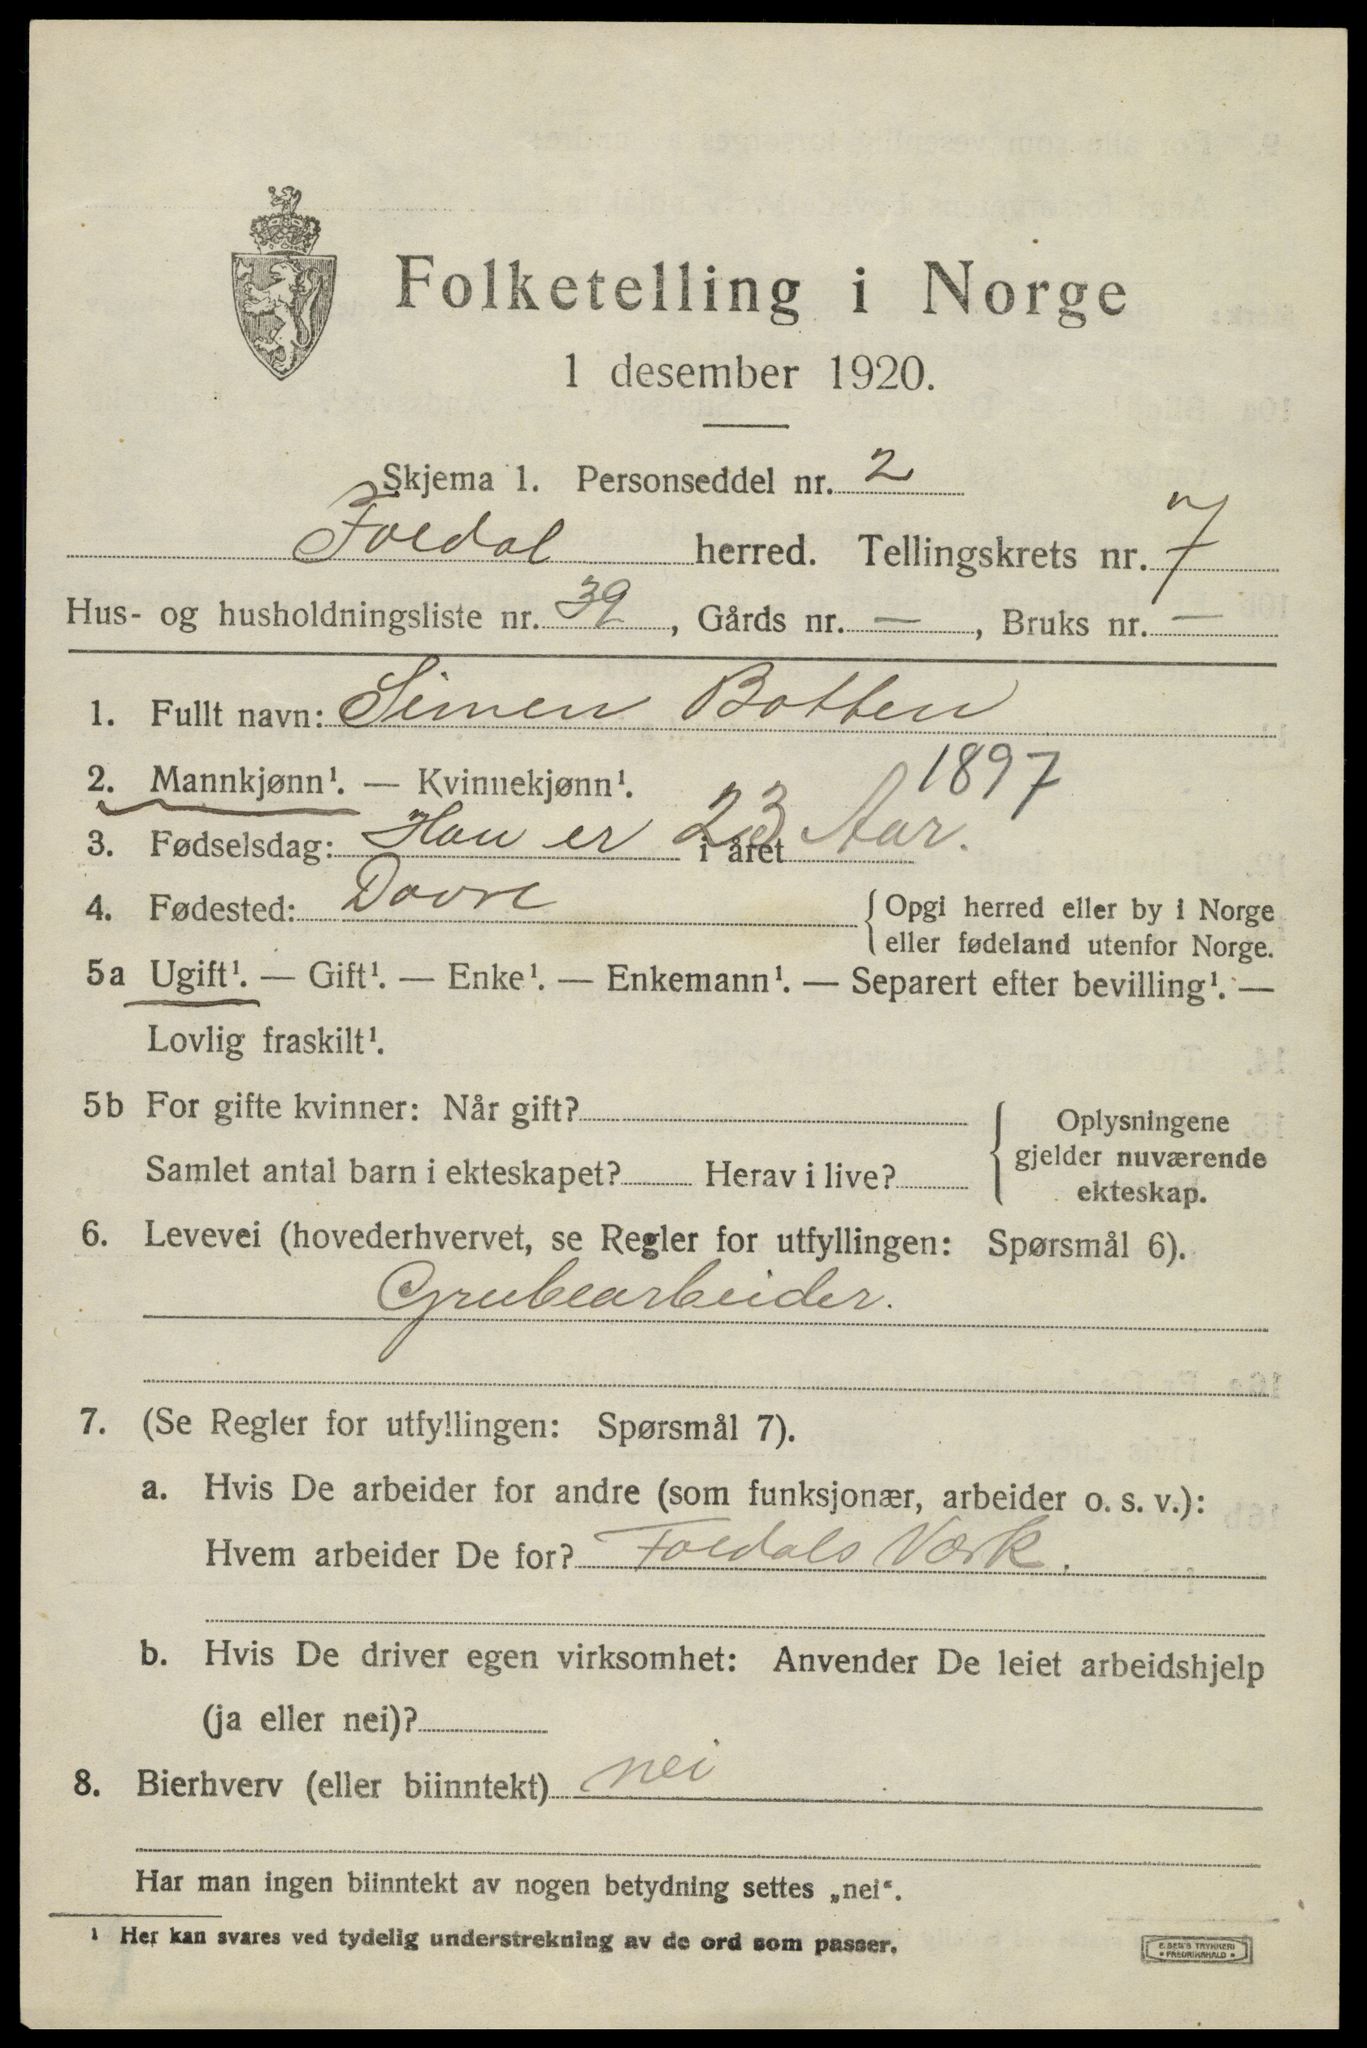 Folketelling i Norge
1 desember 1920.
Skjema 1. Personseddel nr. 2
Foldal herred. Tellingskrets nr. 7
Hus- og husholdningsliste nr. 39, Gårds nr. —, Bruks nr. —
1. Fullt navn: Simen Botten
2. Mannkjønn¹. — Kvinnekjønn¹.
1897
3. Fødselsdag: Han er 23 i året Aar.
4. Fødested: Dovre { Opgi herred eller by i Norge
eller fødeland utenfor Norge.
5a Ugift¹. — Gift¹. — Enke¹. — Enkemann¹. — Separert efter bevilling¹. —
Lovlig fraskilt¹.
5b For gifte kvinner: Når gift? { Oplysningene
gjelder nuværende
Samlet antal barn i ekteskapet? Herav i live?
ekteskap.
6. Levevei (hovederhvervet, se Regler for utfyllingen: Spørsmål 6).
Grubearbeider.
7. (Se Regler for utfyllingen: Spørsmål 7).
a. Hvis De arbeider for andre (som funksjonær, arbeider o. s. v.):
Hvem arbeider De for? Foldals Værk.
b. Hvis De driver egen virksomhet: Anvender De leiet arbeidshjelp
(ja eller nei)?
8. Bierhverv (eller biinntekt) nei
Har man ingen biinntekt av nogen betydning settes „nei“.
¹ Her kan svares ved tydelig understrekning av de ord som passer.
E. SEM'S TRYKKERI
• FREDRIKSHALD •